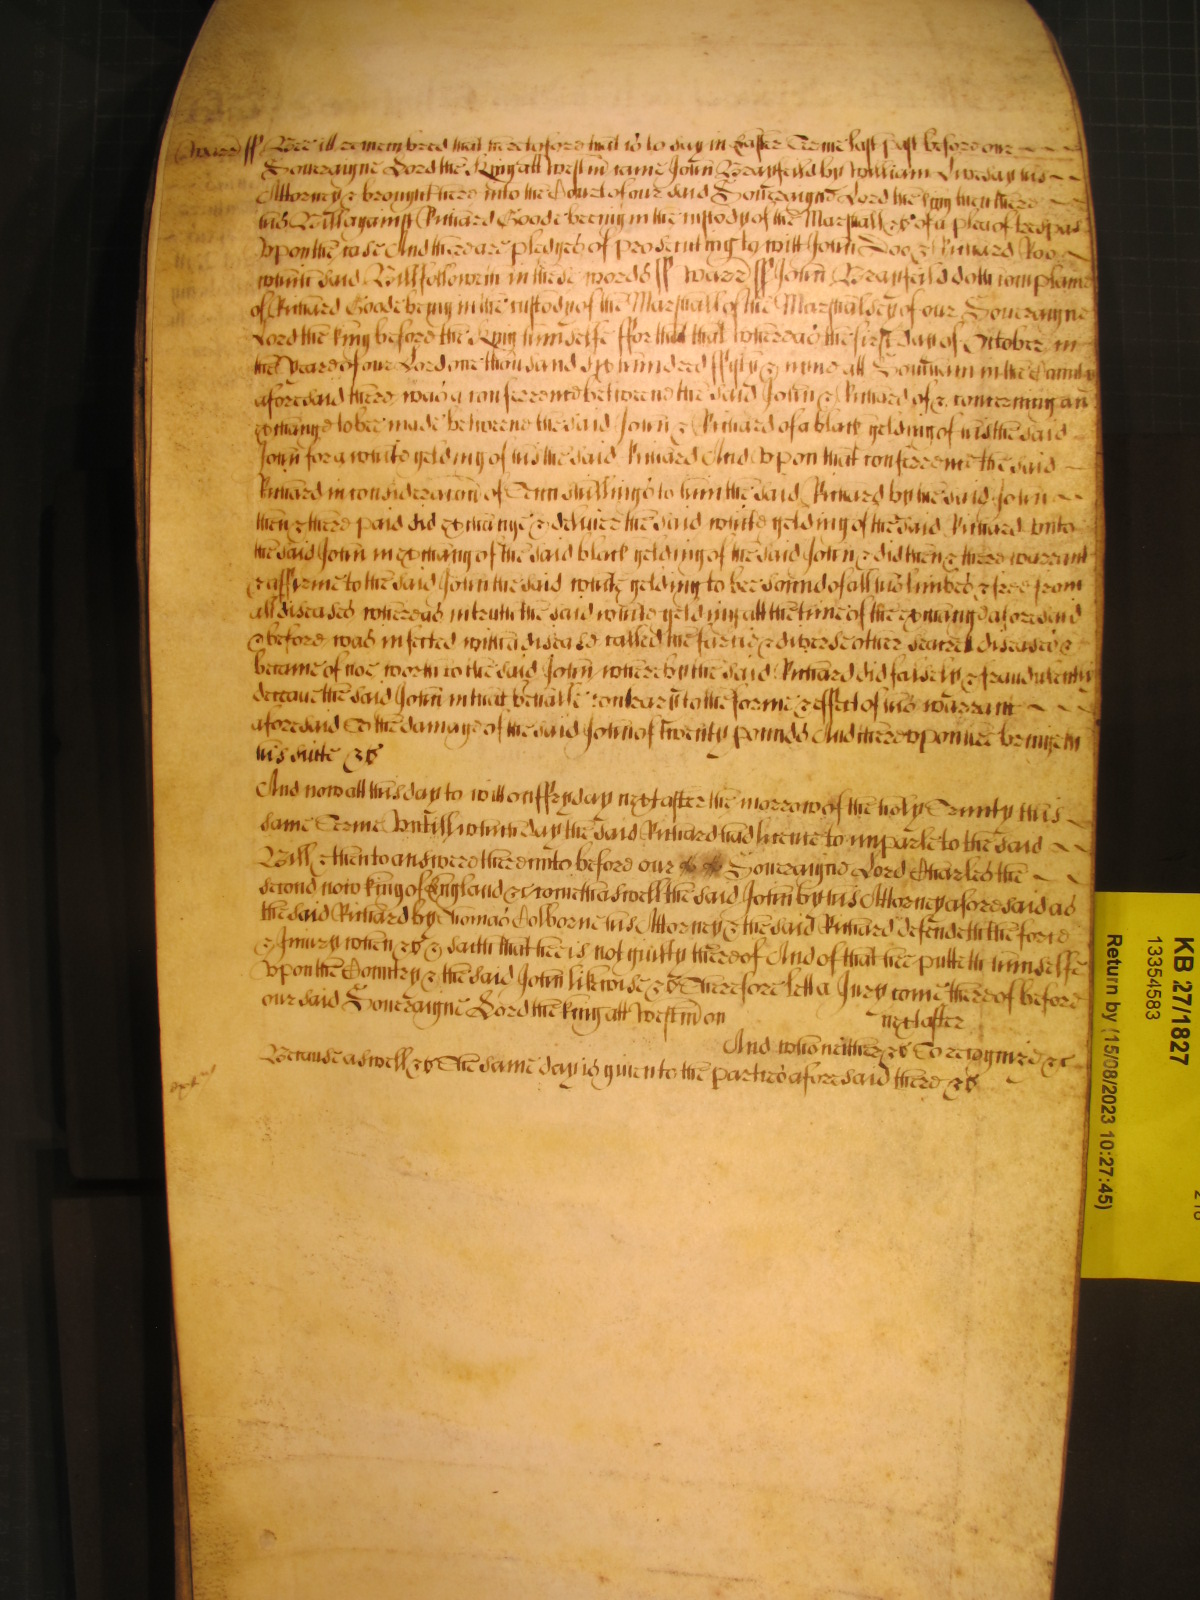 Warr ss Bee itt remembred that heretofore that is to say in Easter Terme last past before our
Soveraigne Lord the King att Westm came John by William his
Attorney & brought here into the Court of our said Soveraigne Lord the King then there
his Bill against Richard Goode beeing in the custody of the Marshall &c of a plea of trespas
vpon the case And there are pledges of prosecuting to witt John Doe & Richard Roo
which said Bill followeth in these words ss Warr ss John doth complaine
of Richard Goode being in the custody of the Marshall of the Marshalsey of our Soveraigne
Lord the King before the King himselfe ffor that that whereas the first day of October in
the Yeare of our Lord one thousand six hundred ffifty & nine att Southam in the County
aforesaid there was a conference betweene the said John & Richard of & concerning an
exchange to bee made betweene the said John & Richard of a black gelding of his the said
John for a white gelding of his the said Richard And vpon that conference the said
Richard in consideracon of Tenn shillings to him the said Richard by the said John
then & there paid did exchange & deliver the said white gelding of the said Richard vnto
the said John in exchang of the said black gelding of the said John & did then & there warrant
& affirme to the said John the said white gelding to bee sound of all his limbes & free from
all diseases whereas in truth the said white gelding att the time of the exchange aforesaid
& before was infected with a disease called the farcie & diverse other secret diseases &
became of noe worth to the said John whereby the said Richard did falsely & fraudulently
deceave the said John in that behalfe contrary to the forme & effect of his warrant
aforesaid To the damage of the said John of twenty pounds And therevpon hee bringeth
his suite &c
And now att this day to witt on ffryday next after the morrow of the holy Trinity this
same Terme Vntill which day the said Richard had licence to imparle to the said
Bill & then to answere therevnto before our Soveraigne Lord Charles the
second now king of England &c cometh aswell the said John by his Attorney aforesaid as
the said Richard by Thomas Colborne his Attorney & the said Richard defendeth the force
& Iniury when &c & saith that hee is not guilty thereof And of that hee putteth himselfe
Vpon the Country & the said John likewise &c Therefore lett a Jury come thereof before
our said Soveraigne Lord the King att Westm on next after
And who neither &c To recognize &c
Because aswell &c The same day is given to the parties aforesaid there &c
KB 27/1827
13354583
Return by (15/08/2023 10:27:45)